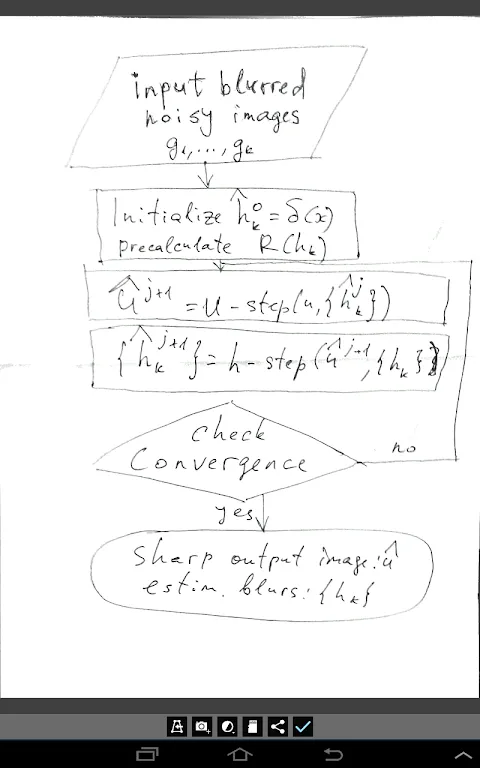 input blurred
noisy images
g₁,...,gₖ
Initialize ĥₖ⁰ = δ(x)
precalculate R(hₖ)
û^{j+1} = u-step(u,{ĥₖ^j})
{ĥₖ^{j+1}} = h-step(û^{j+1},{hₖ})
check
Convergence
no
yes
sharp output image: û
estim. blurs: {hₖ}